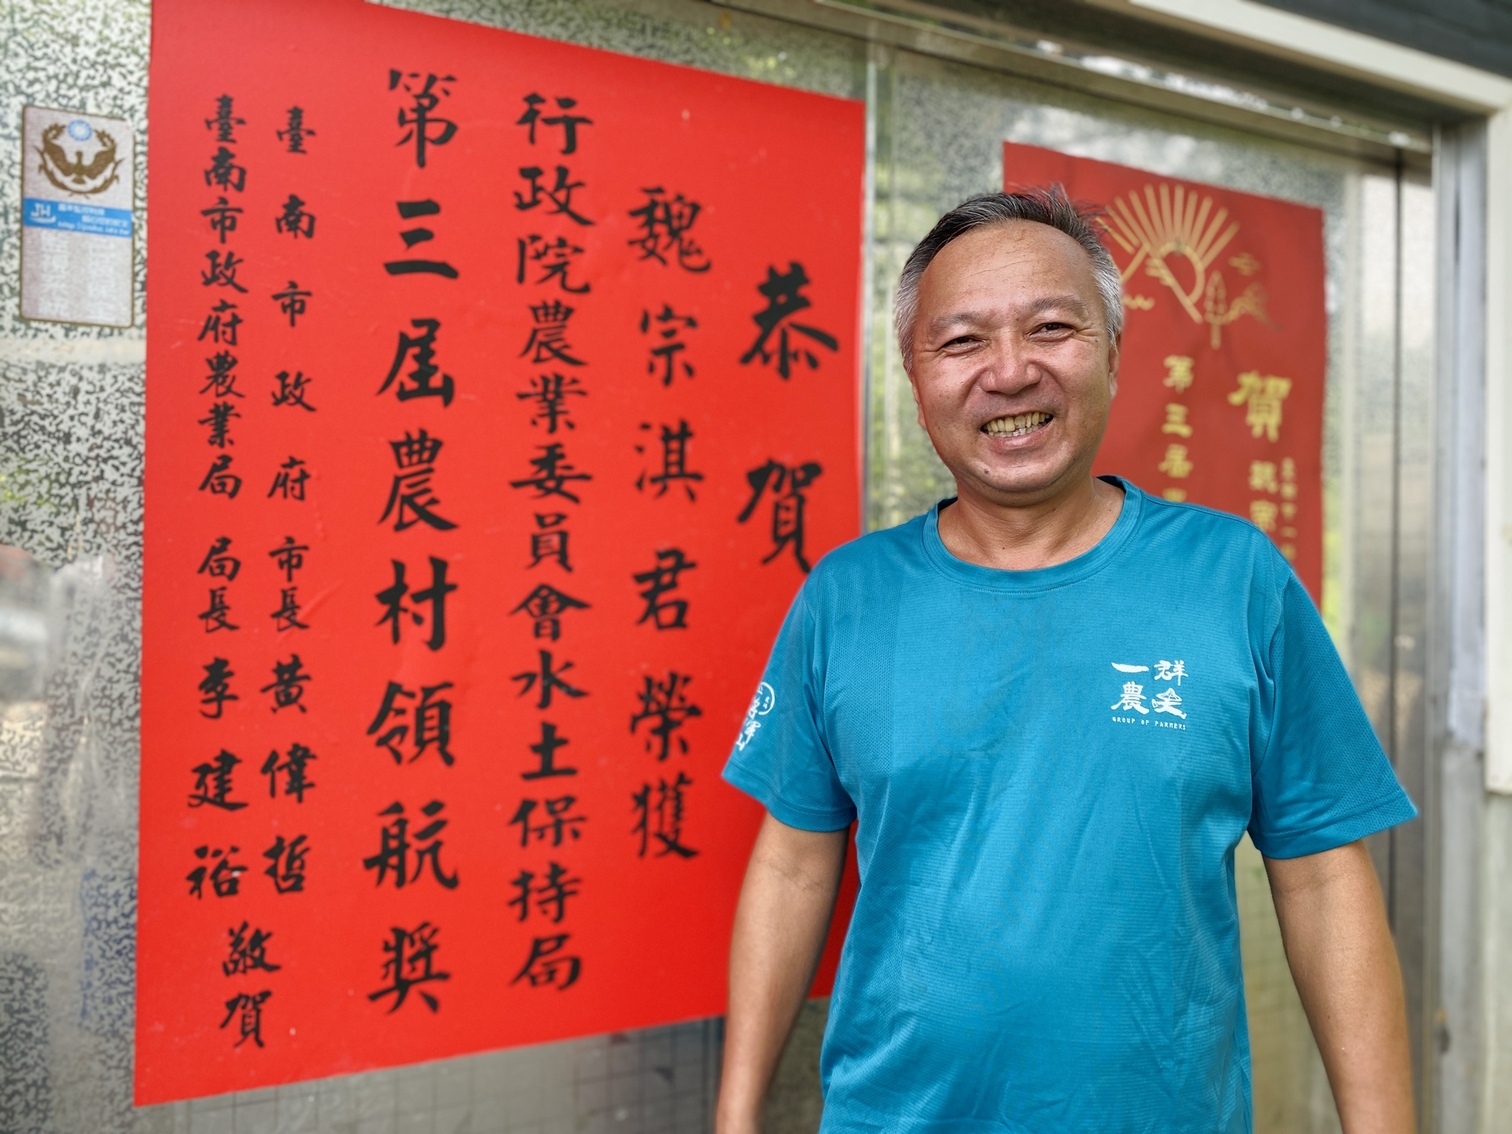 恭賀
魏宗淇君榮獲
行政院農業委員會水土保持局
第三屆農村領航獎
臺南市政府市長黃偉哲
臺南市政府農業局局長李建裕
敬賀
賀
第三屆
一群
農夫
GROUP OF FARMERS